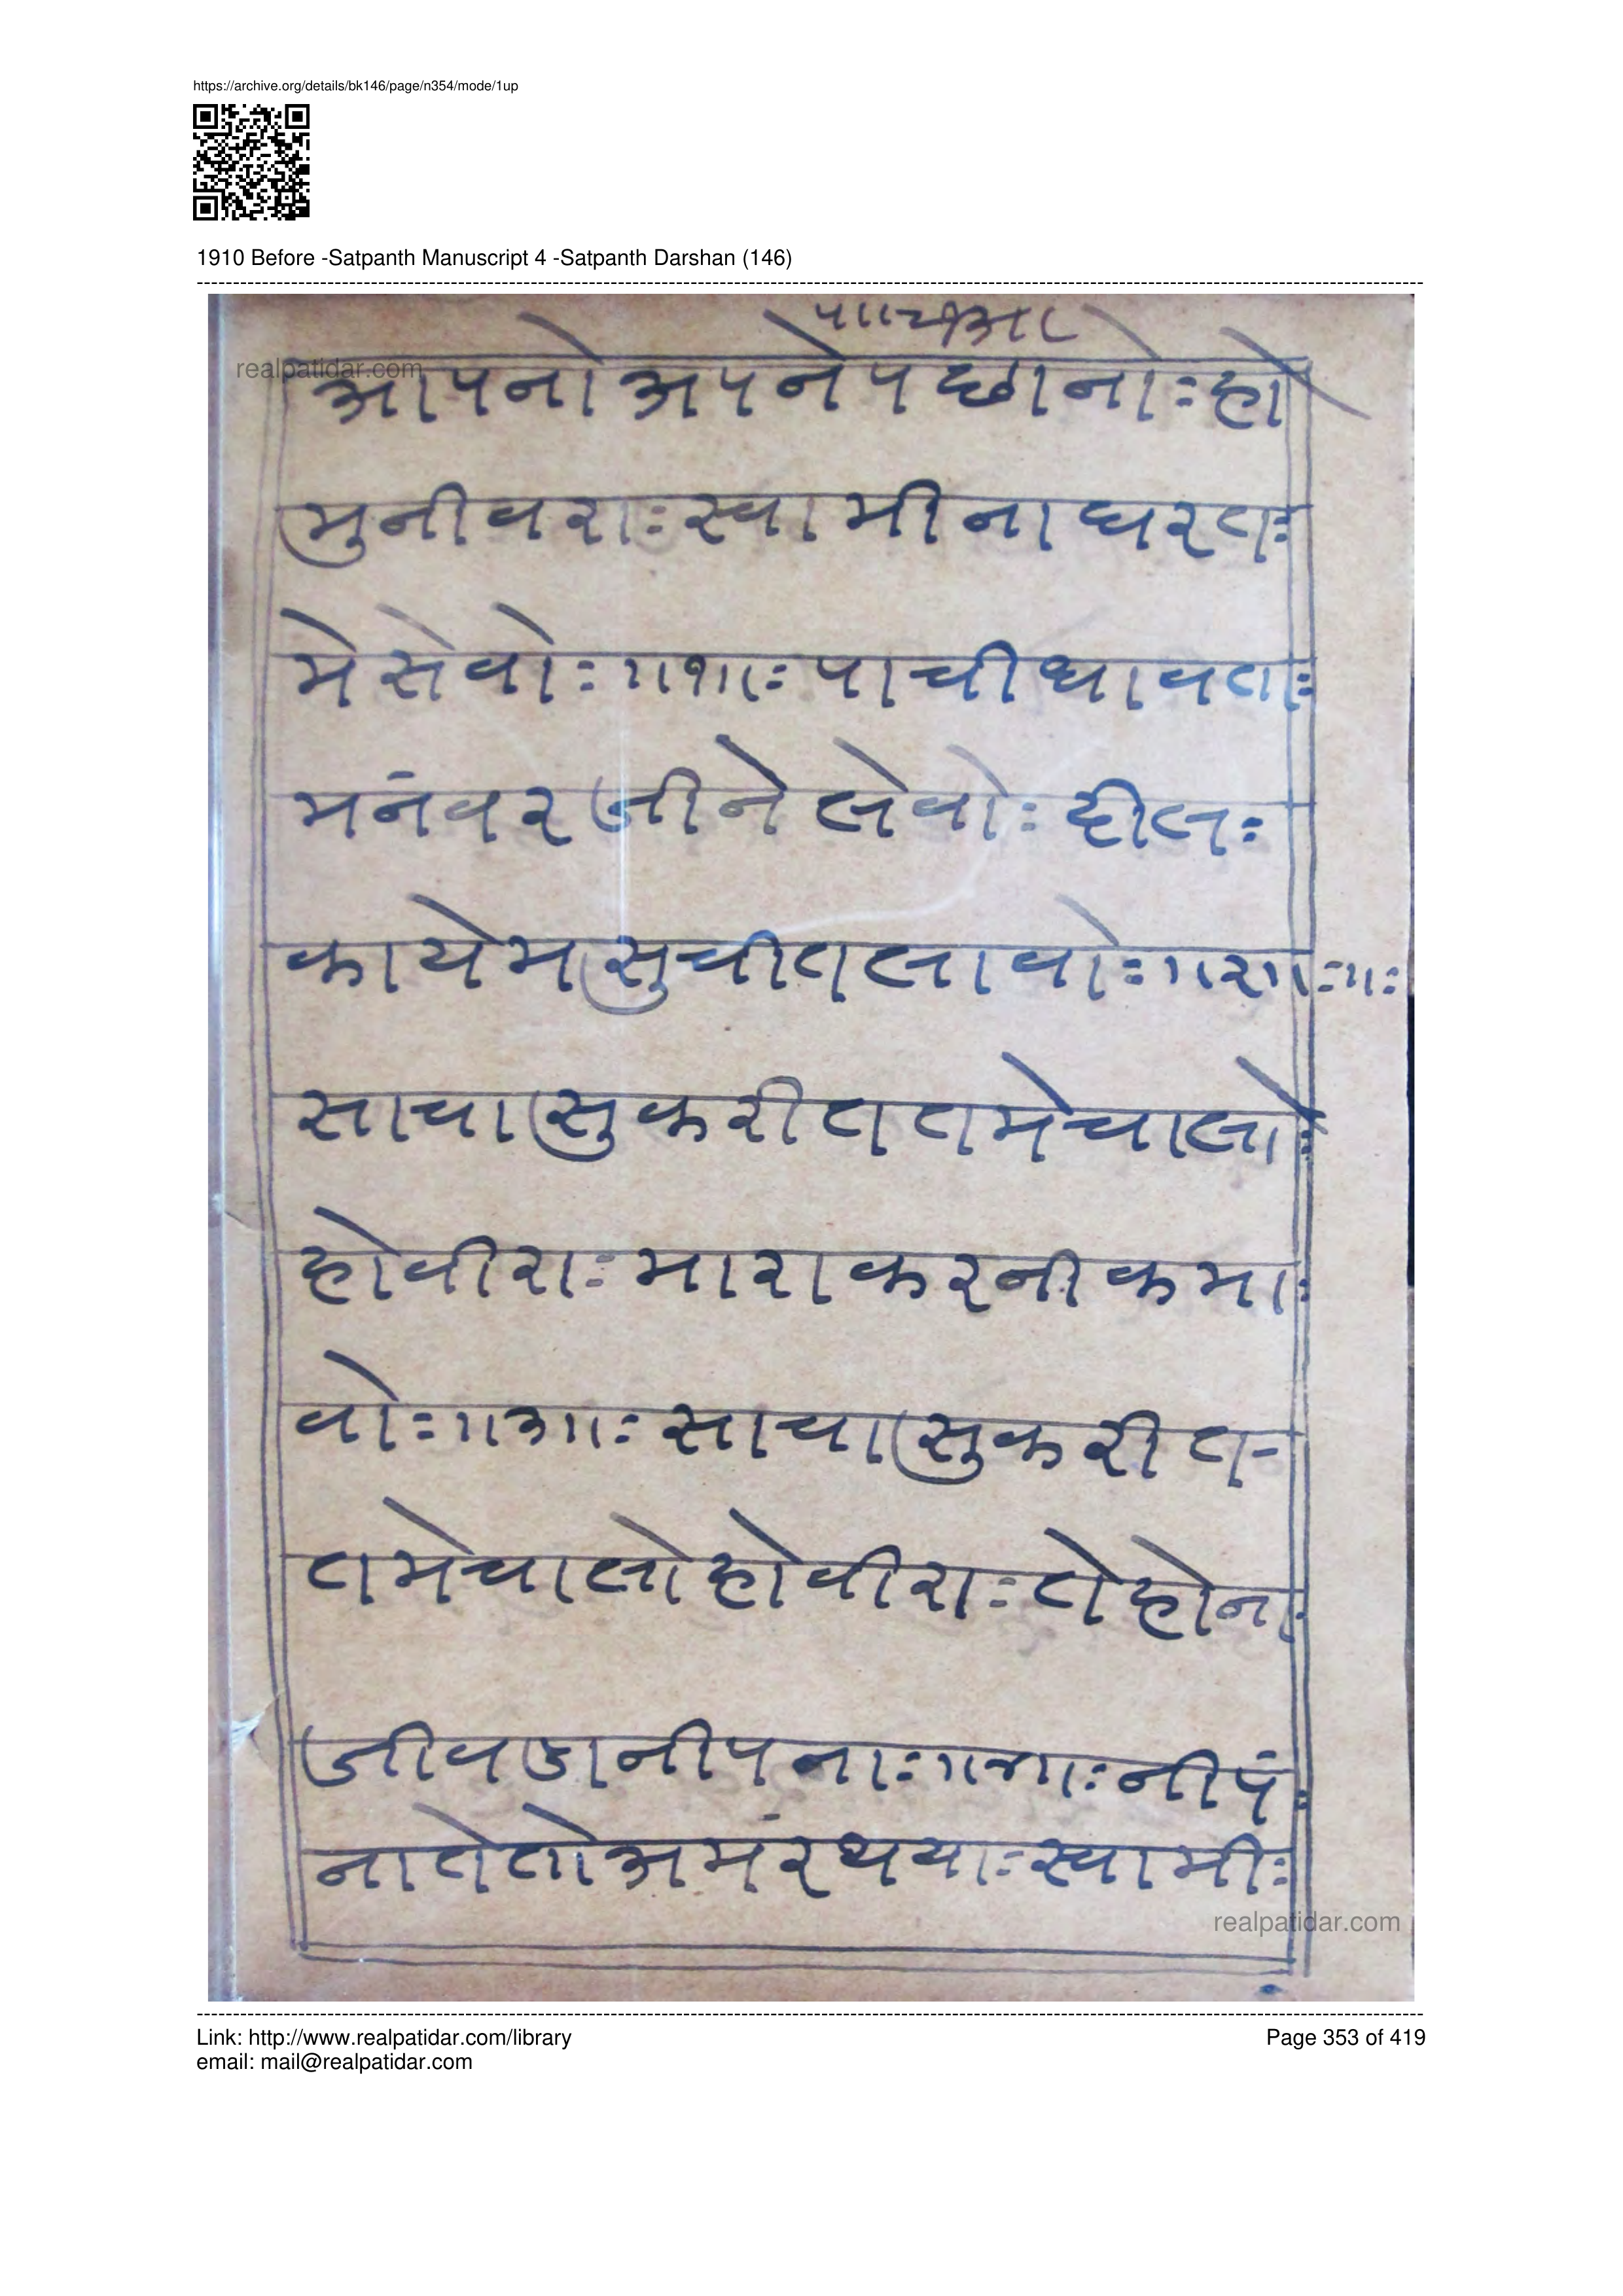 https://archive.org/details/bk146/page/n354/mode/1up
1910 Before -Satpanth Manuscript 4 -Satpanth Darshan (146)
realpatidar.com
आपनो अपने पछानोः हो
मुनीवराः स्वामीना घरतः
मे सेवोः ॥१॥ः पाची थावतः
मनंवरजीने लेवोः दीलः
कायेम सुचीत लावोः ॥२॥ः॥ः
साचा सुकरीत तमे चालोः
हो वीराः मारा करनी कमाः
वोः ॥३॥ः साचा सुकरीत-
तमे चालो हो वीराः ते होनः
जीवडा नीपनाः ॥४॥ः नीपंः
ना ते तो अमंर थयाः स्वामीः
realpatidar.com
Link: http://www.realpatidar.com/library
Page 353 of 419
email: mail@realpatidar.com